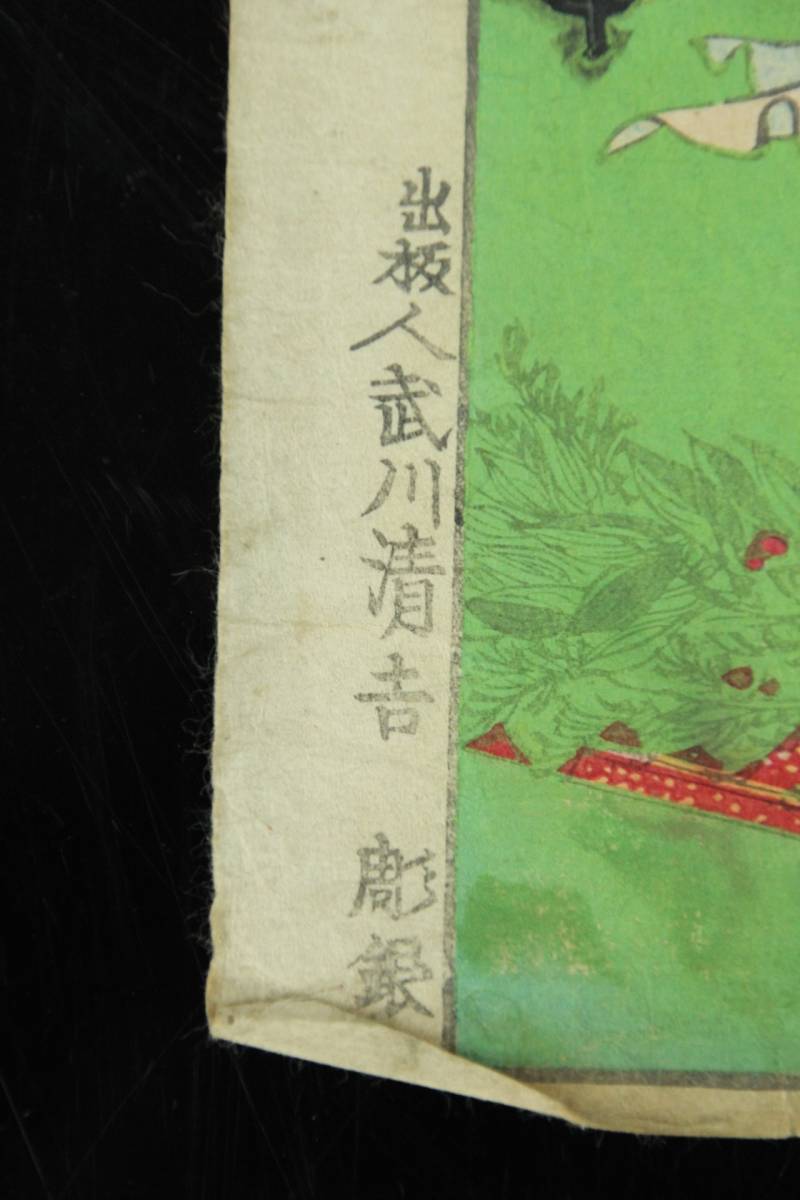 出板人武川清吉　彫銀